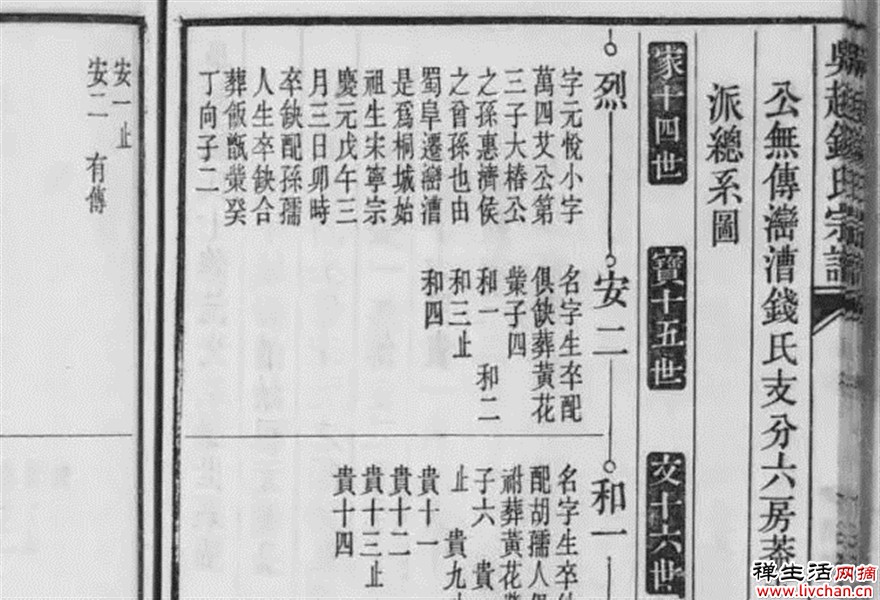 吳越錢氏宗譜
公無傳灣漕錢氏支分六房
派總系圖
家十四世
寶十五世
文十六世
烈
字元悅小字
萬四艾公第
三子大椿公
之孫惠濟侯
之曾孫也由
蜀阜遷灣漕
是爲桐城始
祖生宋寧宗
慶元戊午三
月三日卯時
卒缺配孫孺
人生卒缺合
葬飯甑塋癸
丁向子二
安一止
安二 有傳
安二
名字生卒配
俱缺葬黃花
塋子四
和一 和二
和三止
和四
和一
名字生卒
配胡孺人
祔葬黃花
子六 貴
止 貴九
貴十一
貴十二
貴十三止
貴十四
禅生活网摘
www.livchan.cn